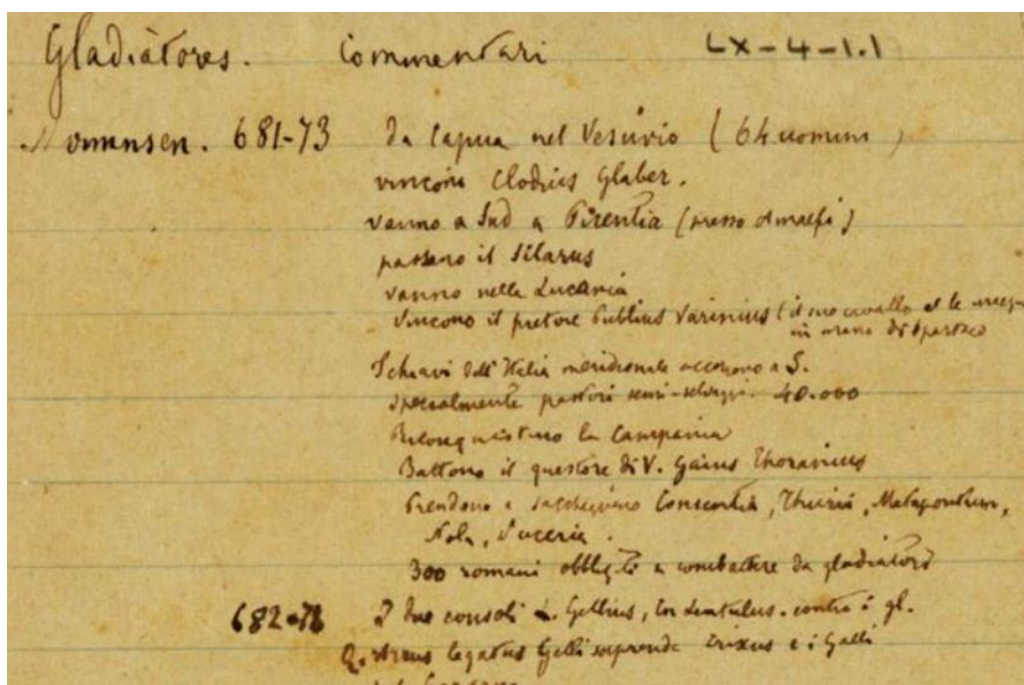 Gladiatores. Commentari LX-4-1.1
Mommsen. 681-73 Da Capua nel Vesuvio (64 uomini)
vincono Clodius Glaber.
vanno a Sud a Picentia (presso Amalfi)
passano il Silarus
vanno nella Lucania
Vincono il pretore Publius Varinius (il suo cavallo et le insegne
in mano di Spartaco
Schiavi dell'Italia meridionale accorrono a S.
specialmente pastori semi-selvaggi. 40.000
Riconquistano la Campania
Battono il questore di V. Gaius Thoranius
Prendono e saccheggiano Consentia, Thurii, Metapontum,
Nola, Nuceria.
300 romani obbligati a combattere da gladiatori
682-72 I due consoli L. Gellius, Cn Lentulus. contro i gl.
Q. Arrius legatus Gelli sorprende Crixus e i Galli